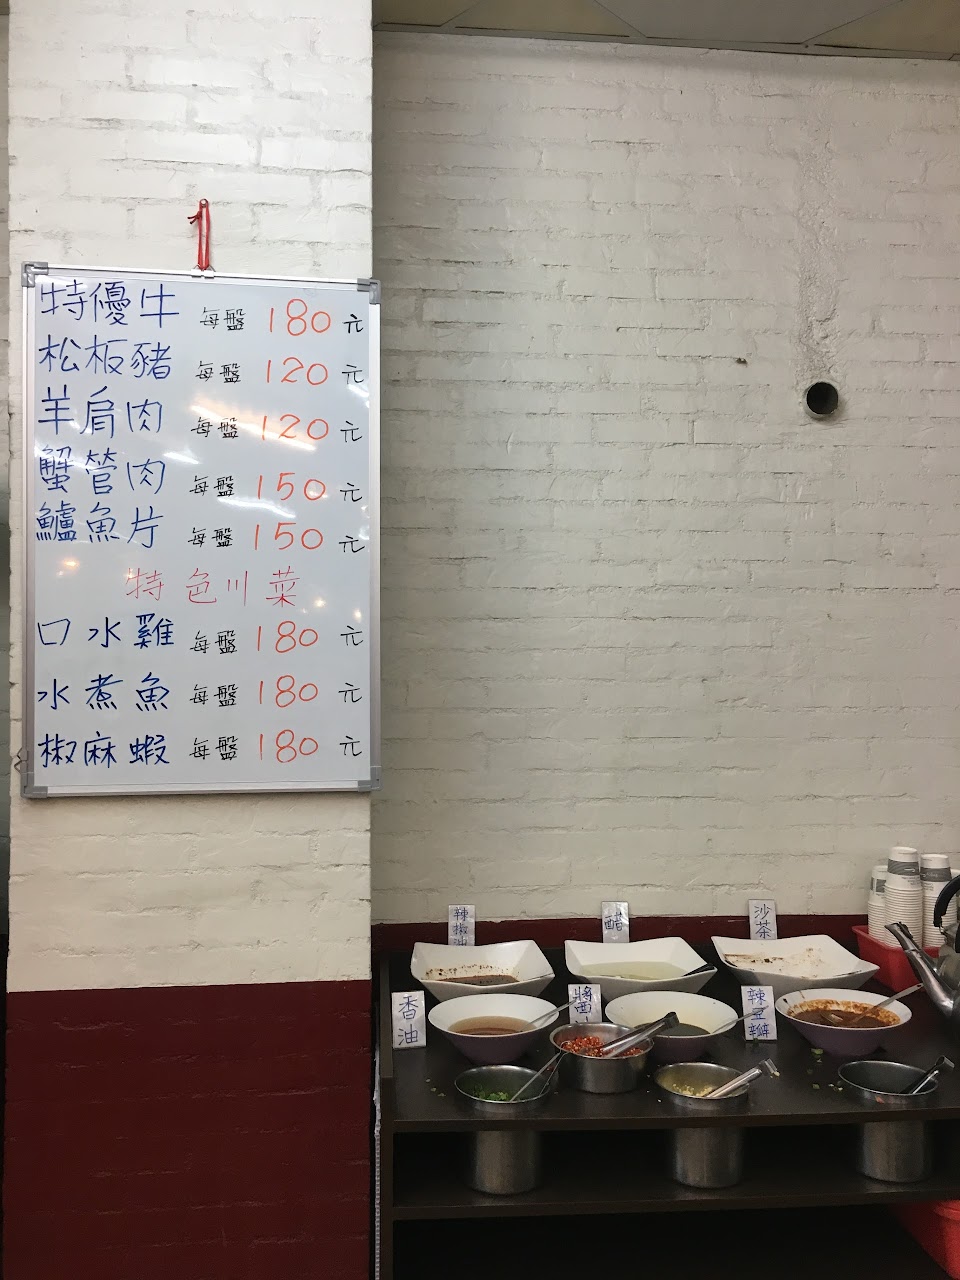 特優牛 每盤 180 元
松板豬 每盤 120 元
羊肩肉 每盤 120 元
蟹管肉 每盤 150 元
鱸魚片 每盤 150 元
特色川菜
口水雞 每盤 180 元
水煮魚 每盤 180 元
椒麻蝦 每盤 180 元
辣椒油
醋
沙茶
香油
醬油
辣豆瓣